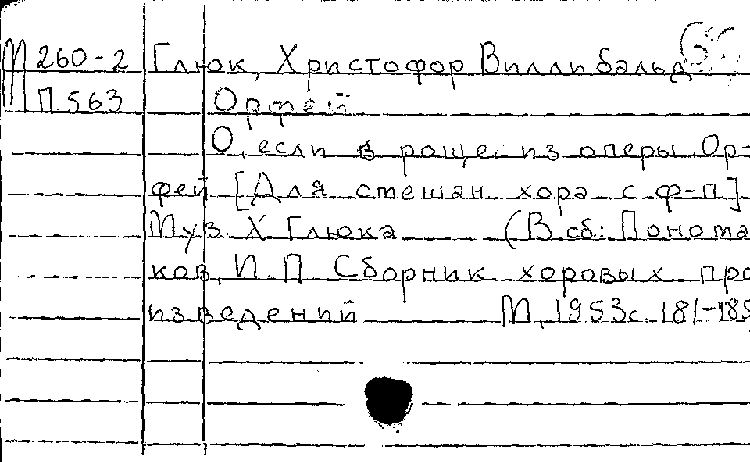 М 260-2 Глюк, Христофор Виллибальд
П 563 Орфей
О, если в роще из оперы Ор-
фей [Для смешан. хора с ф-п].
Муз. Х Глюка (В сб: Понома
ков, И. П Сборник хоровых про
изведений М, 1953 с. 181-185